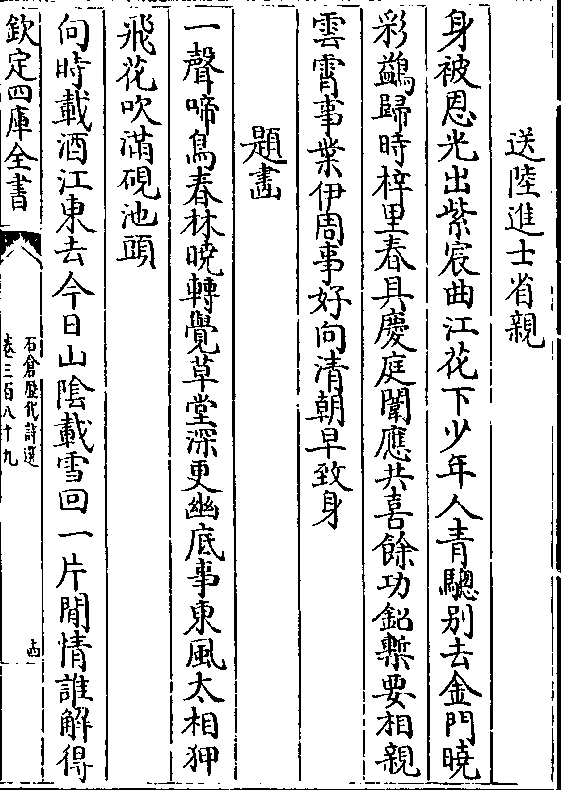 送陸進士省親
身被恩光出紫宸曲江花下少年人青驄别去金門曉
彩鷁歸時梓里春具慶庭闈應共喜餘功鉛槧要相親
雲霄事業伊周事好向清朝早致身
題畫
一聲啼鳥春林曉轉覺草堂深更幽底事東風太相狎
飛花吹滿硯池頭
向時載酒江東去今日山陰載雪回一片閒情誰解得
欽定四庫全書
石倉歷代詩選
卷三百八十九